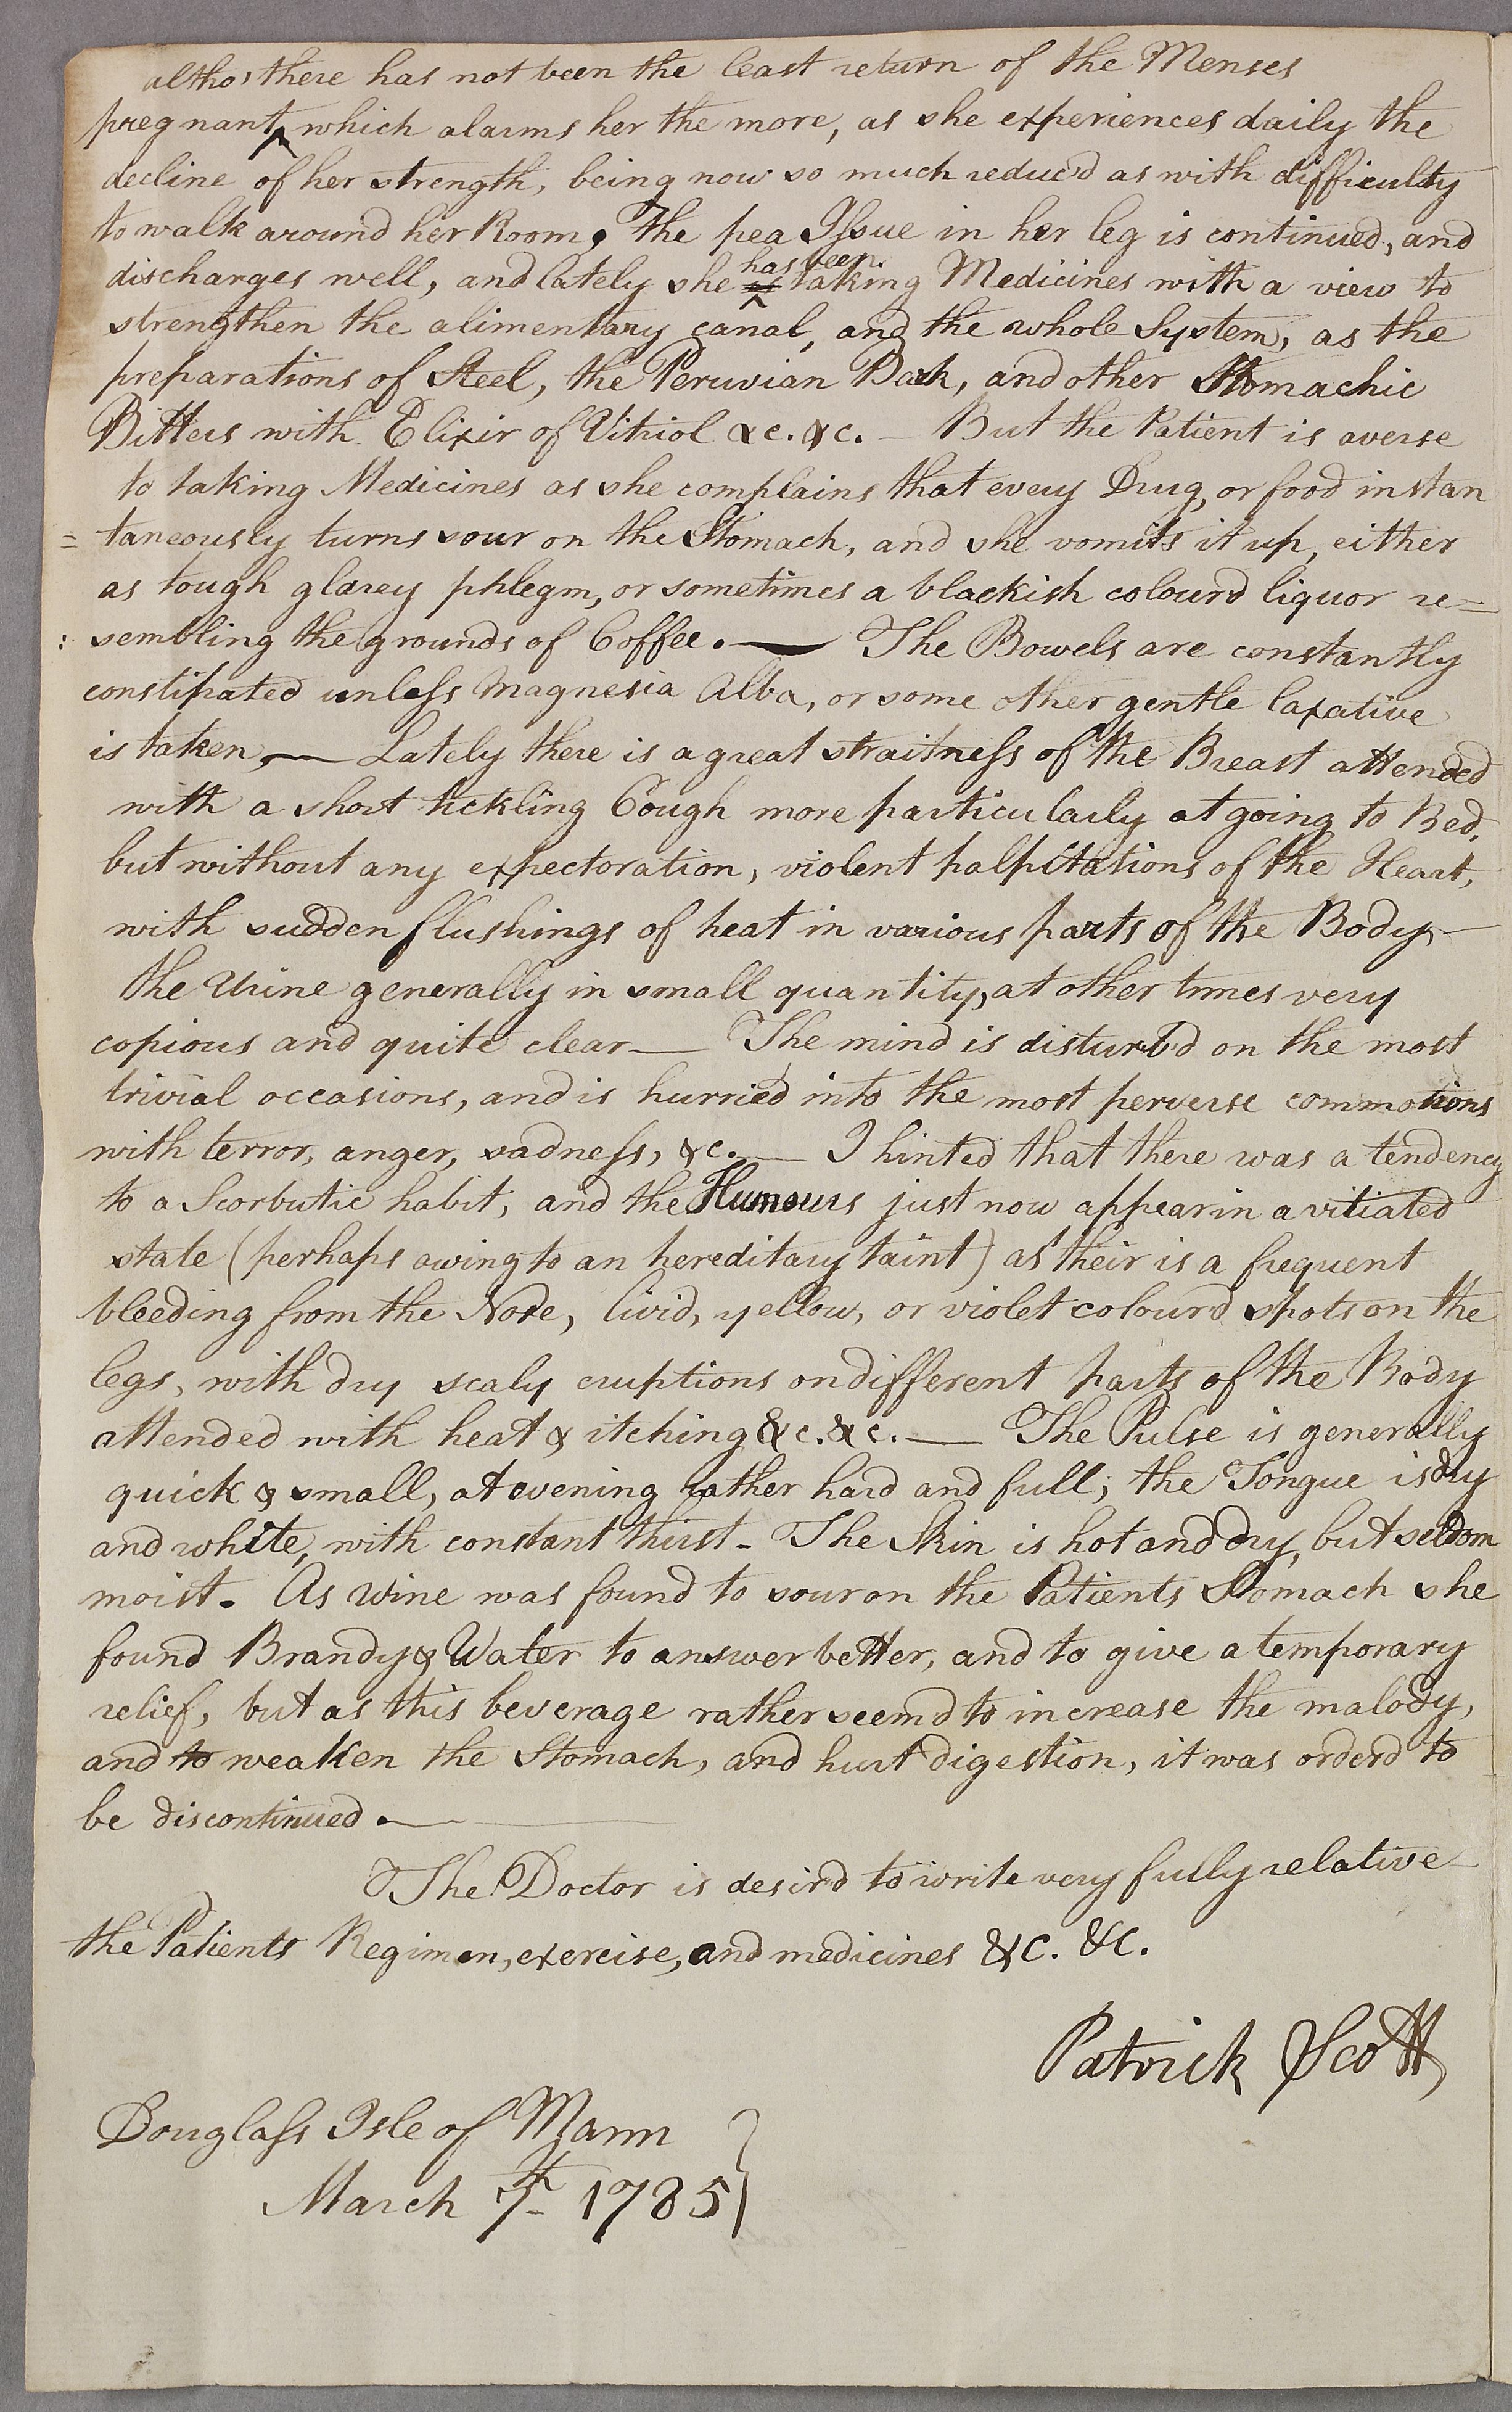 altho' there has not been the least return of the Menses
pregnant^ which alarms her the more, as she experiences daily the
decline of her strength, being now so much reduc'd as with difficulty
to walk around her Room. The pea Issue in her leg is continued, and
has been
discharges well, and lately she ^ taking Medicines with a view to
strengthen the alimentary canal, and the whole System, as the
preparations of Steel, the Peruvian Bark, and other Stomachic
Bitters with Elixir of Vitriol &c. &c. — But the Patient is averse
to taking Medicines as she complains that every Drug, or food instan
= taneously turns sour on the Stomach, and she vomits it up, either
as tough glarey phlegm, or sometimes a blackish colourd liquor re=
: sembling the grounds of Coffee. — The Bowels are constantly
constipated unless Magnesia Alba, or some other gentle laxative
is taken, — Lately there is a great straitness of the Breast attended
with a short tickling Cough more particularly at going to Bed,
but without any expectoration, violent palpitations of the Heart,
with sudden flushings of heat in various parts of the Body —
the Urine generally in small quantity, at other times very
copious and quite clear — The mind is disturb'd on the most
trivial occasions, and is hurried into the most perverse commotions
with terror, anger, sadness, &c. — I hinted that there was a tendency
to a Scorbutic habit, and the Humours just now appear in a vitiated
state (perhaps owing to an hereditary taint) as their is a frequent
bleeding from the Nose, livid, yellow, or violet colourd spots on the
legs, with dry scaly eruptions on different parts of the Body
attended with heat & itching &c. &c. — The Pulse is generally
quick & small, at evening rather hard and full; the Tongue is dry
and white, with constant thirst - The Skin is hot and dry, but seldom
moist. As Wine was found to sour on the Patients Stomach she
found Brandy & Water to answer better, and to give a temporary
relief, but as this beverage rather seemd to increase the malody,
and to weaken the Stomach, and hurt digestion, it was orderd to
be discontinued. —
The Doctor is desir'd to write very fully relative
the Patients Regimen, exercise, and medicines &c. &c.
Patrick Scott
Douglass Isle of Mann }
March 7th 1785 }